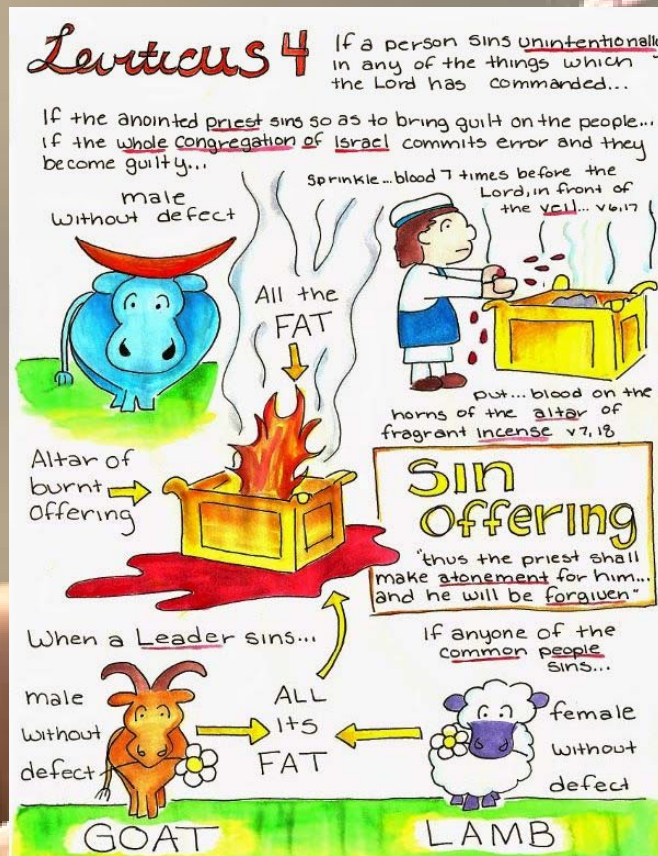 Leviticus 4
If a person sins unintentionally
in any of the things which
the Lord has commanded...
If the anointed priest sins so as to bring guilt on the people...
If the whole congregation of Israel commits error and they
become guilty...
male
without defect
Sprinkle...blood 7 times before the
Lord, in front of
the veil... v6,17
All the
FAT
put...blood on the
horns of the altar of
fragrant incense v7,18
Altar of
burnt
Offering
Sin
Offering
"thus the priest shall
make atonement for him...
and he will be forgiven"
When a Leader sins...
If anyone of the
common people
sins...
male
without
defect
ALL
its
FAT
female
without
defect
GOAT
LAMB